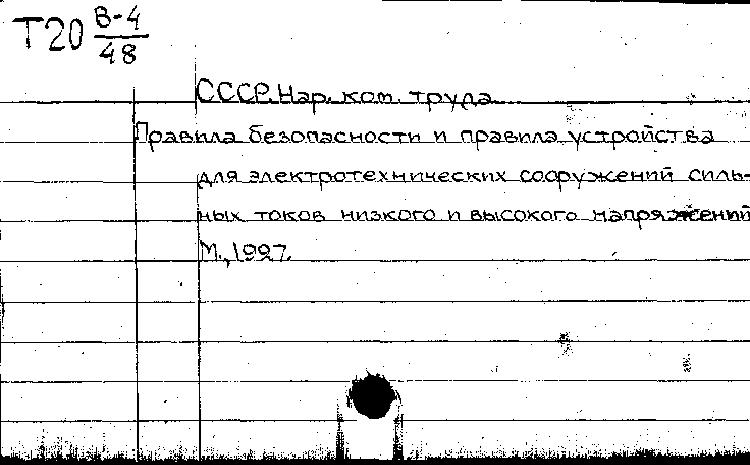 Т20 В-4
48
СССР. Нар. ком. труда
Правила безопасности и правила устройства
для электротехнических сооружений силь-
ных токов низкого и высокого напряжений
М., 1927.